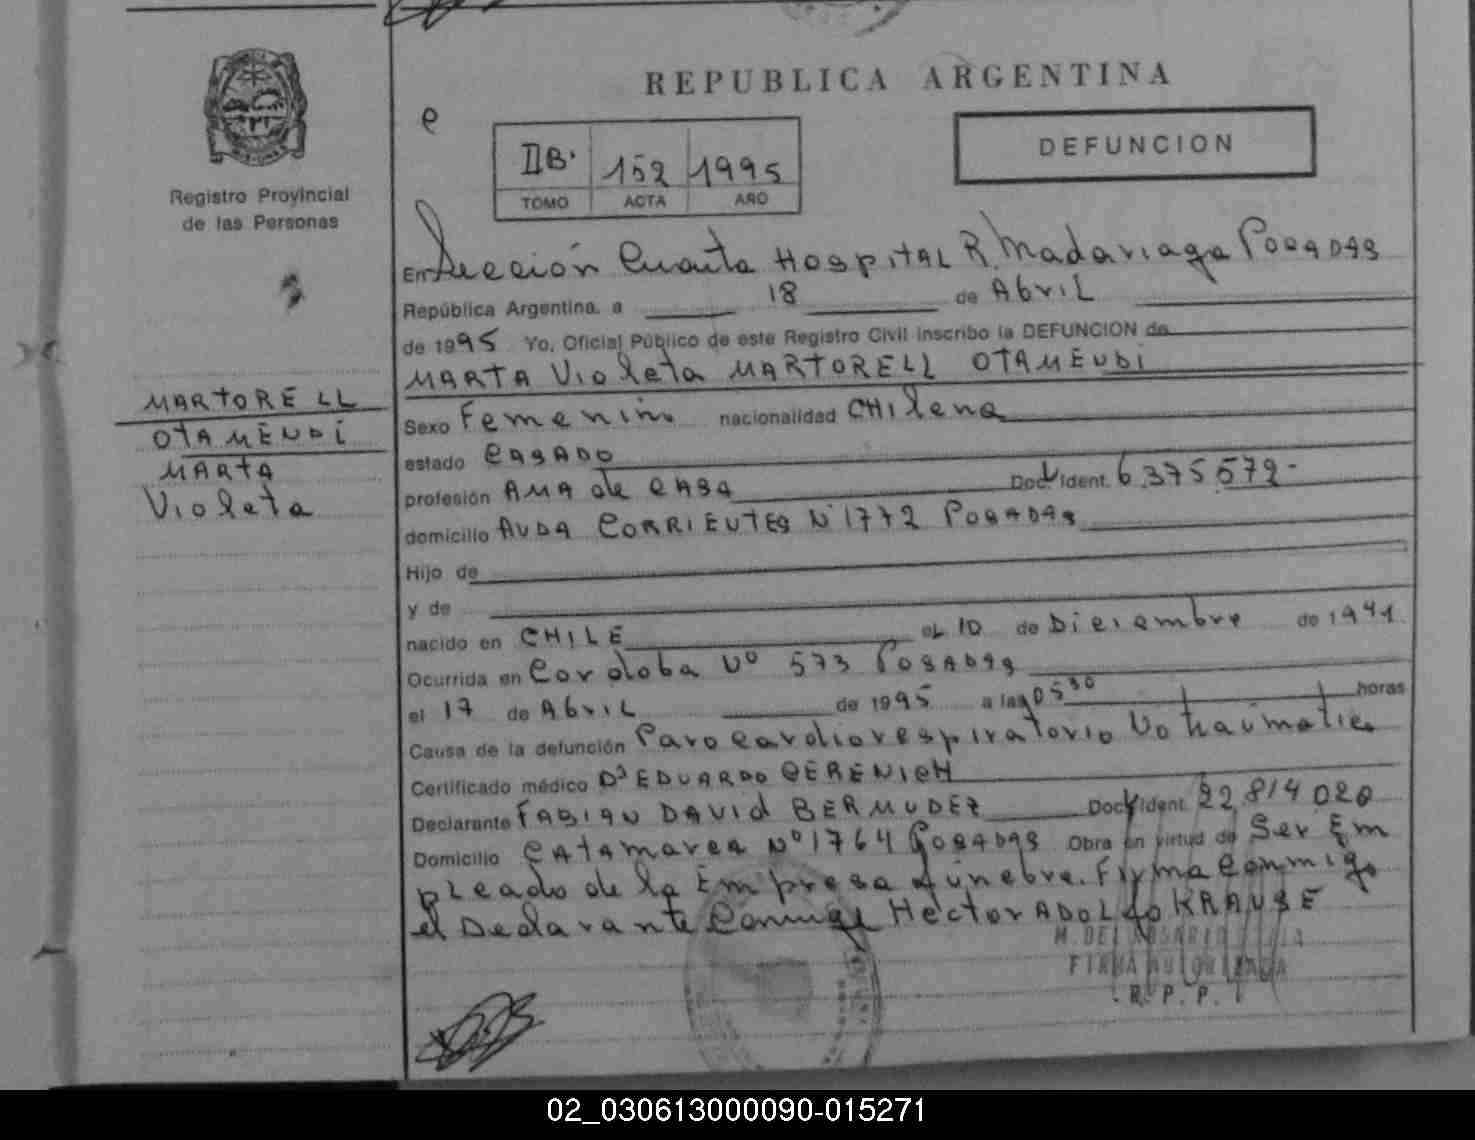 REPUBLICA ARGENTINA
e
IIB. 152 1995
TOMO ACTA AÑO
DEFUNCION
Registro Provincial
de las Personas
MARTORELL
OTAMENDI
MARTA
Violeta
En Sección Cuarta Hospital R. Madariaga Posadas
República Argentina, a 18 de Abril
de 1995 Yo, Oficial Público de este Registro Civil inscribo la DEFUNCION de
MARTA Violeta MARTORELL OTAMENDI
Sexo Femenino nacionalidad CHilena
estado CASADO
profesión AMA de CASA Doc. Ident. 6.375.572-
domicilio AVDA CORRIENTES Nº 1772 POSADAS
Hijo de
y de
nacido en CHILE el 10 de Diciembre de 1941
Ocurrida en Cordoba Nº 573 POSADAS
el 17 de Abril de 1995 a las 0530 horas
Causa de la defunción Paro cardiorespiratorio No traumatico
Certificado médico Dr EDUARDO GERENICH
Declarante FABIAN DAVID BERMUDEZ Doc. Ident. 22.814.020
Domicilio CATAMARCA Nº 1764 POSADAS Obra en virtud de Ser Em
pleado de la Empresa funebre. Firma conmigo
el Declarante Conyuge Hector ADOLfo KRAUSE
M. DEL ROSARIO
FIRMA AUTORIZADA
R. P. P.
02_030613000090-015271